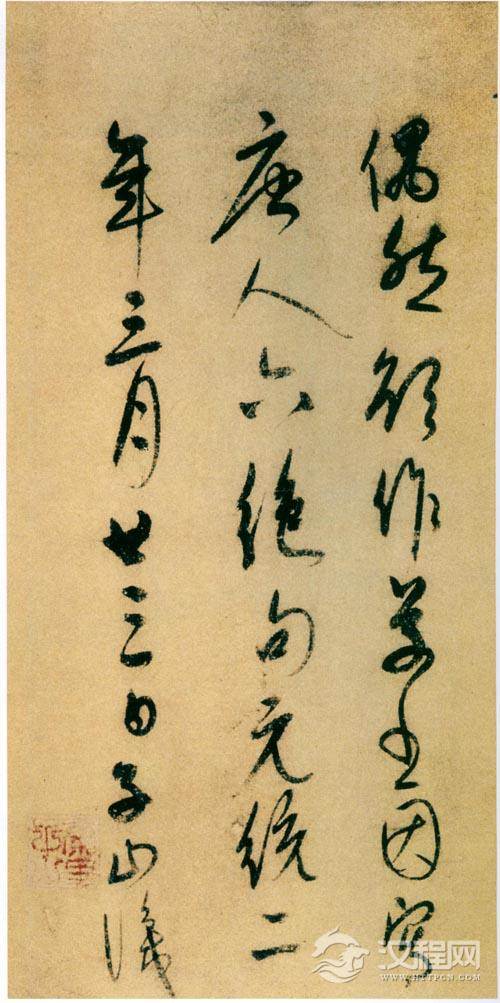 偶然欲作草書因寫
唐人六絕句元統二
年三月廿三日子山識
汉程网
WWW.HTTPCN.COM